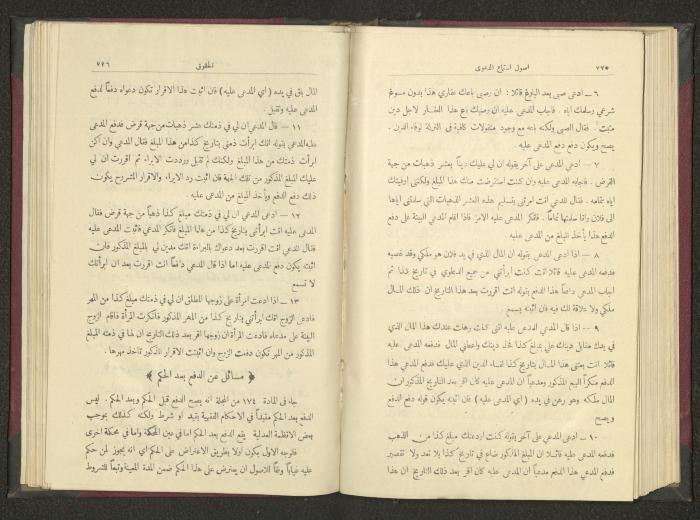 اصول استماع الدعوى
٦ — ادعى صبي بعد البلوغ قائلا : ان وصيي باعك عقاري هذا بدون مسوغ
شرعي وسلمك اياه . فاجاب المدعى عليه ان وصيك باع هذا العقار لاجل دين
مثبت . فقال الصبي ولكنه باعه مع وجود منقولات كافية في التركة لوفاء الدين .
يصح ويكون دفع دفع المدعى عليه
٧ — ادعى المدعي على آخر بقوله ان لي عليك ديناً عشر ذهبات من جهة
القرض . فاجابه المدعى عليه وان كنت استقرضت منك هذا المبلغ ولكنني اوفيتك
اياه بتمامه . فقال المدعي انت امرتني بتسليم هذه العشر الذهبات التي سلمتني اياها
الى فلان وانا سلمتها تماماً . فانكر المدعى عليه الامر فاذا اقام المدعي البينة على دفع
الدفع هذا يأخذ المبلغ من المدعى عليه
٨ — اذا ادعى المدعي بقوله ان المال الذي في يد فلان هو ملكي وقد غصبه
فدفعه المدعى عليه قائلا انت كنت ابرأتني من جميع الدعاوي في تاريخ كذا ثم
اجاب المدعي دافعاً هذا الدفع بقوله انت اقررت بعد هذا التاريخ ان ذلك المال
ملكي ولا علاقة لك فيه فان اثبته يسمع
٩ — اذا قال المدعي للمدعى عليه انني كنت رهنت عندك هذا المال الذي
في يدك مقابل دينك علي بمبلغ كذا فخذ دينك واعطني المال . فدفعه المدعى عليه
قائلا انت بعتني هذا المال بتاريخ كذا لقاء الدين الذي عليك فدفع المدعي هذا
الدفع منكراً البيع المذكور ومدعياً ان المدعى عليه كان اقر بعد التاريخ المذكور ان
المال ملكه وهو رهن في يده ( اي المدعى عليه ) فان اثبته يكون قوله دفع الدفع
ويصح
١٠ — ادعى المدعي على آخر بقوله كنت اودعتك مبلغ كذا من الذهب
فدفعه المدعى عليه قائلا ان المبلغ المذكور ضاع في تاريخ كذا بلا تعد ولا تقصير
فدفع المدعي هذا الدفع مدعياً ان المدعى عليه كان اقر بعد ذلك التاريخ ان هذا
الحقوق ٧٧٦
المال باق في يده ( اي المدعى عليه ) فان اثبت هذا الاقرار تكون دعواه دفعاً لدفع
المدعى عليه وتقبل
١١ — قال المدعي ان لي في ذمتك عشر ذهبات من جهة قرض فدفع المدعى
عليه المدعي بقوله انك ابرأت ذمتي بتاريخ كذا من هذا المبلغ فقال المدعي وان اكن
ابرأت ذمتك من هذا المبلغ ولكنك لم تقبل ورددت الابراء. ثم اقررت ان لي
عليك المبلغ المذكور من تلك الجهة فان اثبت رد الابراء والاقرار المشروح يكون
ذلك دفع الدفع ويأخذ المبلغ من المدعى عليه .
١٢ — ادعى المدعي ان لي في ذمتك مبلغ كذا ذهباً من جهة قرض فقال
المدعى عليه انت ابرأتني بتاريخ كذا من هذا المبلغ فأنكر المدعي فاثبت المدعى عليه
فقال المدعي انت اقررت بعد دعواك بالبراءة انك مدين لي بالمبلغ المذكور فان
اثبته يكون دفع المدعى عليه اما اذا قال المدعي دافعاً انت اقررت بعد ان ابرأتك
لا تسمع
١٣ — اذا ادعت امرأة على زوجها المطلق ان لي في ذمتك مبلغ كذا من المهر
فادعى الزوج انك ابرأتني بتاريخ كذا من المهر المذكور فأنكرت المرأة فاقام الزوج
البينة على مدعاه فادعت المرأة ان زوجها اقر بعد ذلك التاريخ ان لها في ذمته المبلغ
المذكور من المهر تكون دفعت الزوج وان اثبتت الاقرار المذكور تأخذ مهرها .
﴿ مسائل عن الدفع بعد الحكم ﴾
جاء في المادة ١٧٤ من المجلة انه يصح الدفع قبل الحكم وبعد الحكم . ليس
الدفع بعد الحكم مقيداً في الاحكام الفقهية بقيد او شرط ولكنه كذلك بموجب
بعض الانظمة العدلية يقع الدفع بعد الحكم اما في عين المحكمة واما في محكمة اخرى
فالوجه الاول يكون اولا بطريق الاعتراض على الحكم اي انه يجوز لمن حكم
عليه غياباً وفقاً للاصول ان يعترض على هذا الحكم ضمن المدة المعينة وتبعاً للشروط